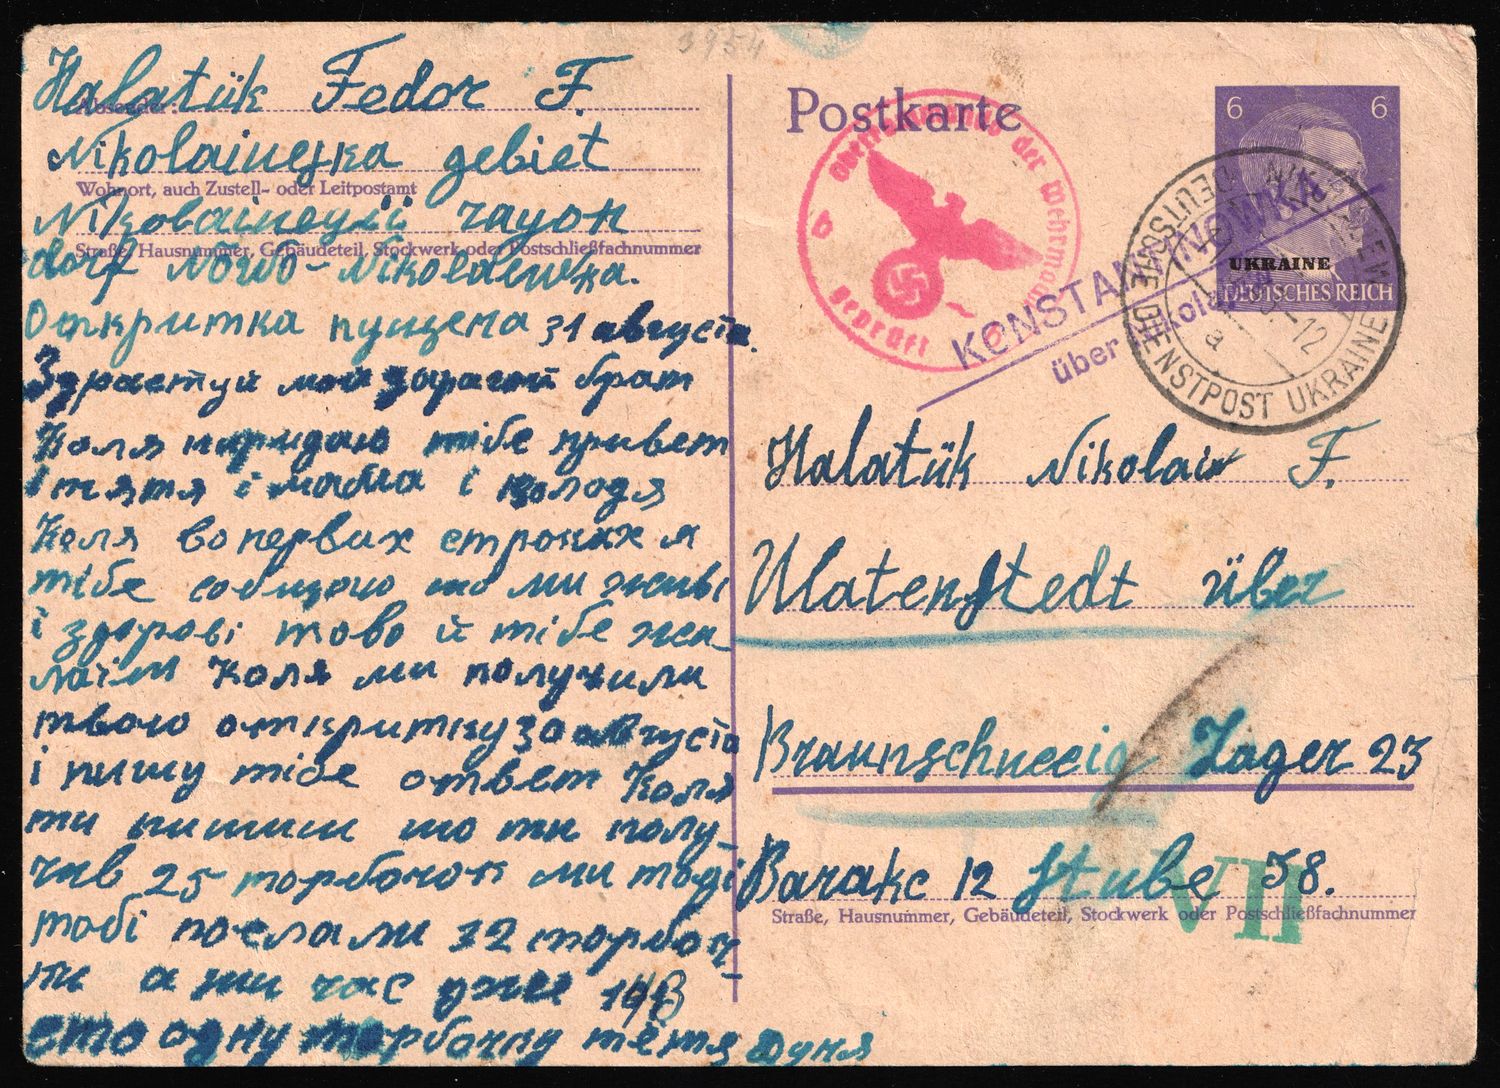 3954
Halatük Fedor F.
Absender:
Nikolainejka gebiet
Wohnort, auch Zustell- oder Leitpostamt
rayon
Straße, Hausnummer, Gebäudeteil, Stockwerk oder Postschließfachnummer
dorf Nowo-Nikolaewka.
Открритка пущена 31 августа.
Здрастуй мой дарагой брат
Коля пиридаю тібе привет
і тятя і мама і володя
Коля во первах строках я
тібе собщаю шо ми живі
і здорові тово й тібе жи-
лаїм Коля ми получили
твою откритку 30 августа
і пишу тібе ответ Коля
ти пишиш шо ти полу-
чив 25 торбочок ми тобі
тобі послали 32 торбоч-
ки а на час уже
ето одну торбочку тётя Дуня
Postkarte
Oberkommando der Wehrmacht
geprüft
b
6 6
UKRAINE
DEUTSCHES REICH
KONSTANTINOWKA
über Nikolajew
NIKOLAJEW
DEUTSCHE DIENSTPOST UKRAINE
-12
a
Halatük Nikolai F.
Watenstedt über
Braunschweig Lager 23
Barake 12 Stube 38.
Straße, Hausnummer, Gebäudeteil, Stockwerk oder Postschließfachnummer
VII